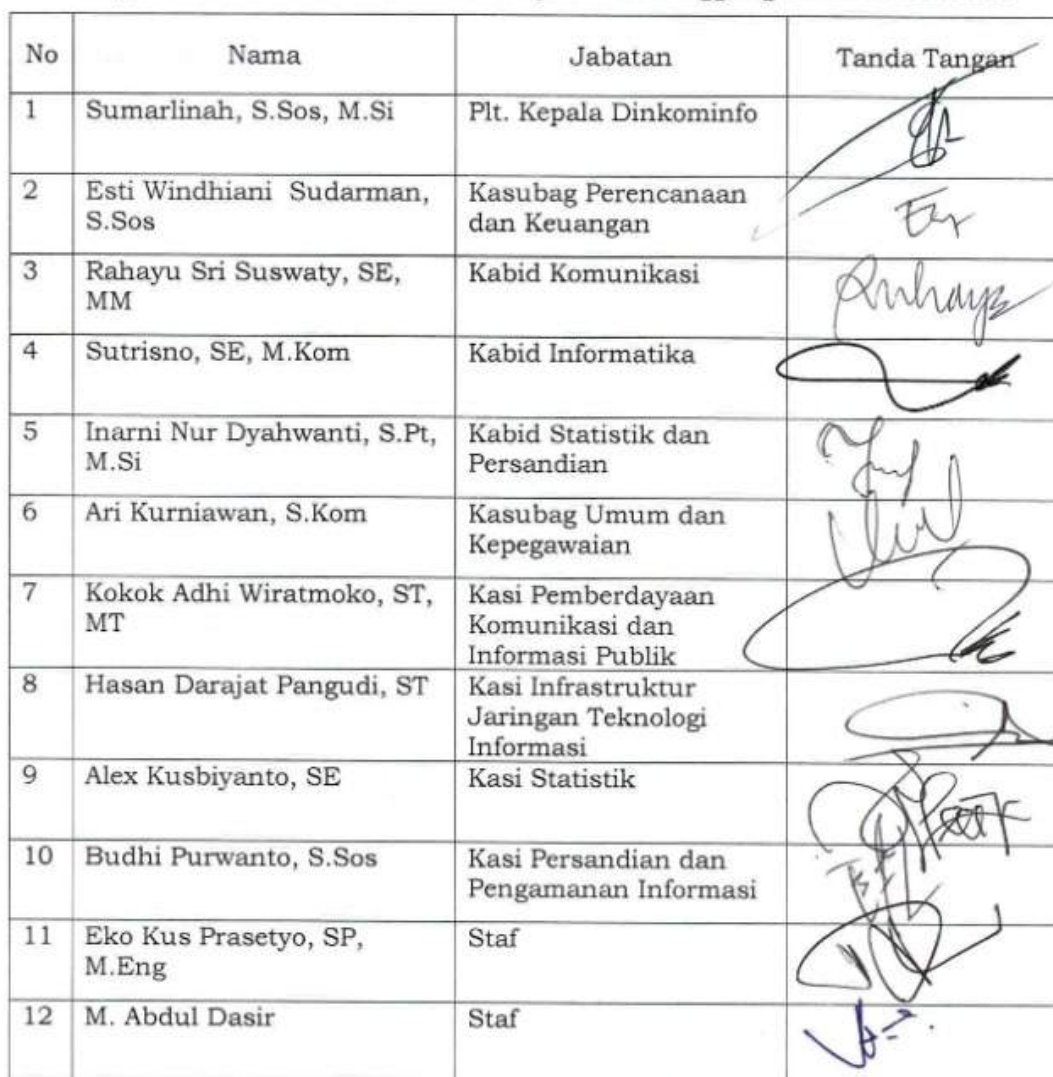 No Nama Jabatan Tanda Tangan
1 Sumarlinah, S.Sos, M.Si Plt. Kepala Dinkominfo
2 Esti Windhiani Sudarman, Kasubag Perencanaan
S.Sos dan Keuangan
3 Rahayu Sri Suswaty, SE, Kabid Komunikasi
MM
4 Sutrisno, SE, M.Kom Kabid Informatika
5 Inarni Nur Dyahwanti, S.Pt, Kabid Statistik dan
M.Si Persandian
6 Ari Kurniawan, S.Kom Kasubag Umum dan
Kepegawaian
7 Kokok Adhi Wiratmoko, ST, Kasi Pemberdayaan
MT Komunikasi dan
Informasi Publik
8 Hasan Darajat Pangudi, ST Kasi Infrastruktur
Jaringan Teknologi
Informasi
9 Alex Kusbiyanto, SE Kasi Statistik
10 Budhi Purwanto, S.Sos Kasi Persandian dan
Pengamanan Informasi
11 Eko Kus Prasetyo, SP, Staf
M.Eng
12 M. Abdul Dasir Staf